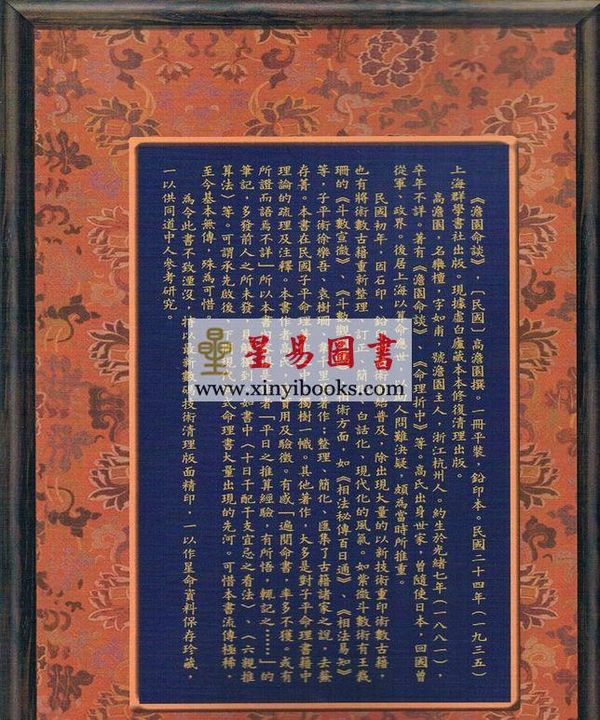 《澹園命談》，〔民國〕高澹園撰。一冊平裝，鉛印本。民國二十四年（一九三五）
上海群學書社出版。現據虛白廬藏本本修復清理出版。
高澹園，名樂檀，字如甫，號澹園主人，浙江杭州人。約生於光緒七年（一八八一），
卒年不詳。著有《澹園命談》、《命理折中》等。高氏出身世家，曾隨使日本，回國曾
從軍、政界。後居上海以算命應世，以 人問難決疑，頗為當時所推重。
民國初年，因石印、鉛 術 始普及，除出現大量的以新技術重印術數古籍，
也有將術數古籍重新整理、訂正、簡 白話化、現代化的風氣。如紫微斗數術有王裁
珊的《斗數宣微》、《斗數觀 相術方面，如《相法秘傳百日通》、《相法易知》
等，子平術徐樂吾、袁樹珊、韋千里 著作；整理、簡化、匯集了古籍諸家之說，去蕪
存菁。本書在民國子平命理 中 獨樹一幟。其他著作，大多是對子平命理書籍中
理論的疏理及注釋。本書作者高氏 實用及驗徵。有感「遍閱命書，率多不獲。或有
所證而語焉不詳」所以本書內 著「平日之推算經驗，有所悟，輒記之……」的
筆記，多發前人之所未發， 見解獨到 如書中〈十日干配干支宜忌之看法〉、〈六親推
算法〉等。可謂承先啟後， 現代 式命理書大量出現的先河。可惜本書流傳極稀，
至今基本無傳，殊為可惜
為令此書不致湮沒，特以最新數碼技術清理版面精印，一以作星命資料保存珍藏，
一以供同道中人參考研究。
星易圖書
www.xinyibooks.com